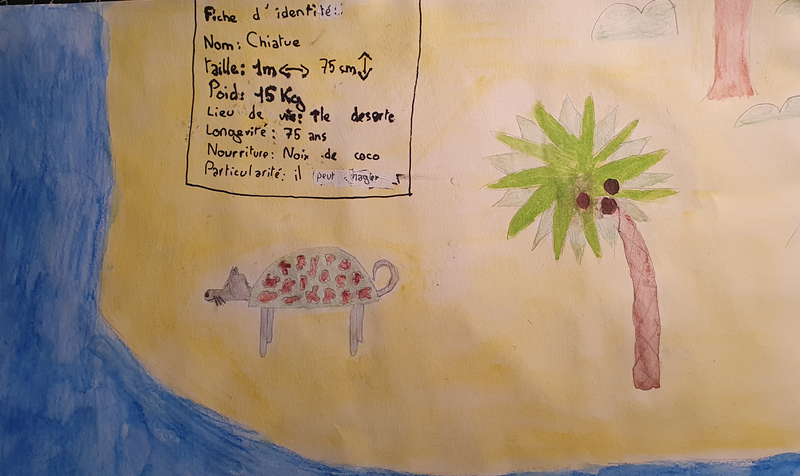 Fiche d'identité:
Nom: Chiatue
taille: 1m 75 cm
Poids 15 Kg
Lieu de vie: île deserte
Longevité: 75 ans
Nourriture: Noix de coco
Particularité: il peut nager